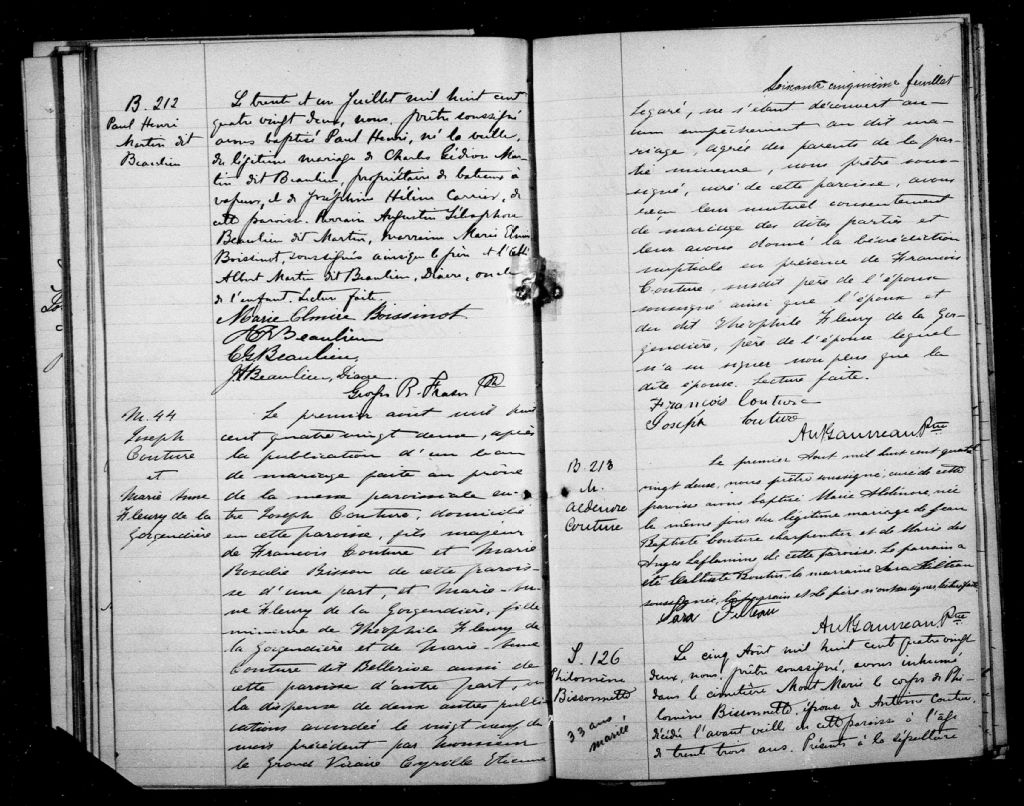 B. 212
Paul Henri
Martin dit
Beaulieu
Le trente et un Juillet mil huit cent
quatre vingt deux, nous, prêtre soussigné
avons baptisé Paul Henri, né la veille,
du légitime mariage de Charles Gédéon Mar-
tin dit Beaulieu, propriétaire de bateaux à
vapeur, et de Joséphine Hélène Carrier, de
cette paroisse. Parrain Augustin Télesphore
Beaulieu dit Martin, marraine Marie Elmire
Boissinot, soussignés ainsi que le père et l'abbé
Albert Martin dit Beaulieu, Diacre, oncle
de l'enfant. Lecture faite.
Marie Elmire Boissinot
Beaulieu
C G Beaulieu
JA Beaulieu, Diacre
Georges R. Fraser Ptre
M. 44
Joseph
Couture
et
Marie Anne
Fleury de la
Gorgendière
Le premier août mil huit
cent quatre vingt deux, après
la publication d'un ban
de mariage faite au prône
de la messe paroissiale en-
tre Joseph Couture, domicilié
en cette paroisse, fils majeur
de Francois Couture et Marie
Rosalie Bisson de cette parois-
se d'une part, et Marie-An-
ne Fleury de la Gorgendière, fille
mineure de Théophile Fleury de
la Gorgendière et de Marie-Anne
Couture dit Bellerive aussi de
cette paroisse d'autre part, vu
la dispense de deux autres publi-
cations accordée le vingt neuf du
mois précédent par Monsieur
le Grand Vicaire Cyrille Etienne
Soixante cinquième feuillet
Legaré, ne s'étant découvert au-
cun empêchement au dit ma-
riage, agrés des parents de la par-
tie mineure, nous prêtre sous-
signé, curé de cette paroisse, avons
recu leur mutuel consentement
de mariage des dites parties et
leur avons donné la bénédiction
nuptiale en présence de Francois
Couture, susdit père de l'époux
soussigné ainsi que l'époux et
du dit Théophile Fleury de la Gor-
gendière, père de l'épouse lequel
n'a su signer non plus que la
dite épouse. Lecture faite.
François Couture
Joseph Couture
Au Gauvreau Ptre
B. 213
M.
Aldénore
Couture
Le premier Aout mil huit cent quatre
vingt deux, nous prêtre soussigné, curé de cette
paroisse avons baptisé Marie Aldénore, née
le même jour du légitime mariage de Jean
Baptiste Couture charpentier et de Marie des
Anges Laflamme de cette paroisse. Le parrain a
été Calixte Boutin, la marraine Sara Filteau
soussignée, le parrain et le père n'ont su signer. Lecture faite
Sara Filteau
Au Gauvreau Ptre
S. 126
Philomène
Bissonnette
33 ans,
mariée
Le cinq Aout mil huit cent quatre vingt
deux, nous, prêtre soussigné, avons inhumé,
dans le cimetière Mont Marie le corps de Phi-
lomène Bissonnette, épouse de Antoine Couture,
décédée l'avant veille, en cette paroisse à l'âge
de trente trois ans. Présents à la sépulture